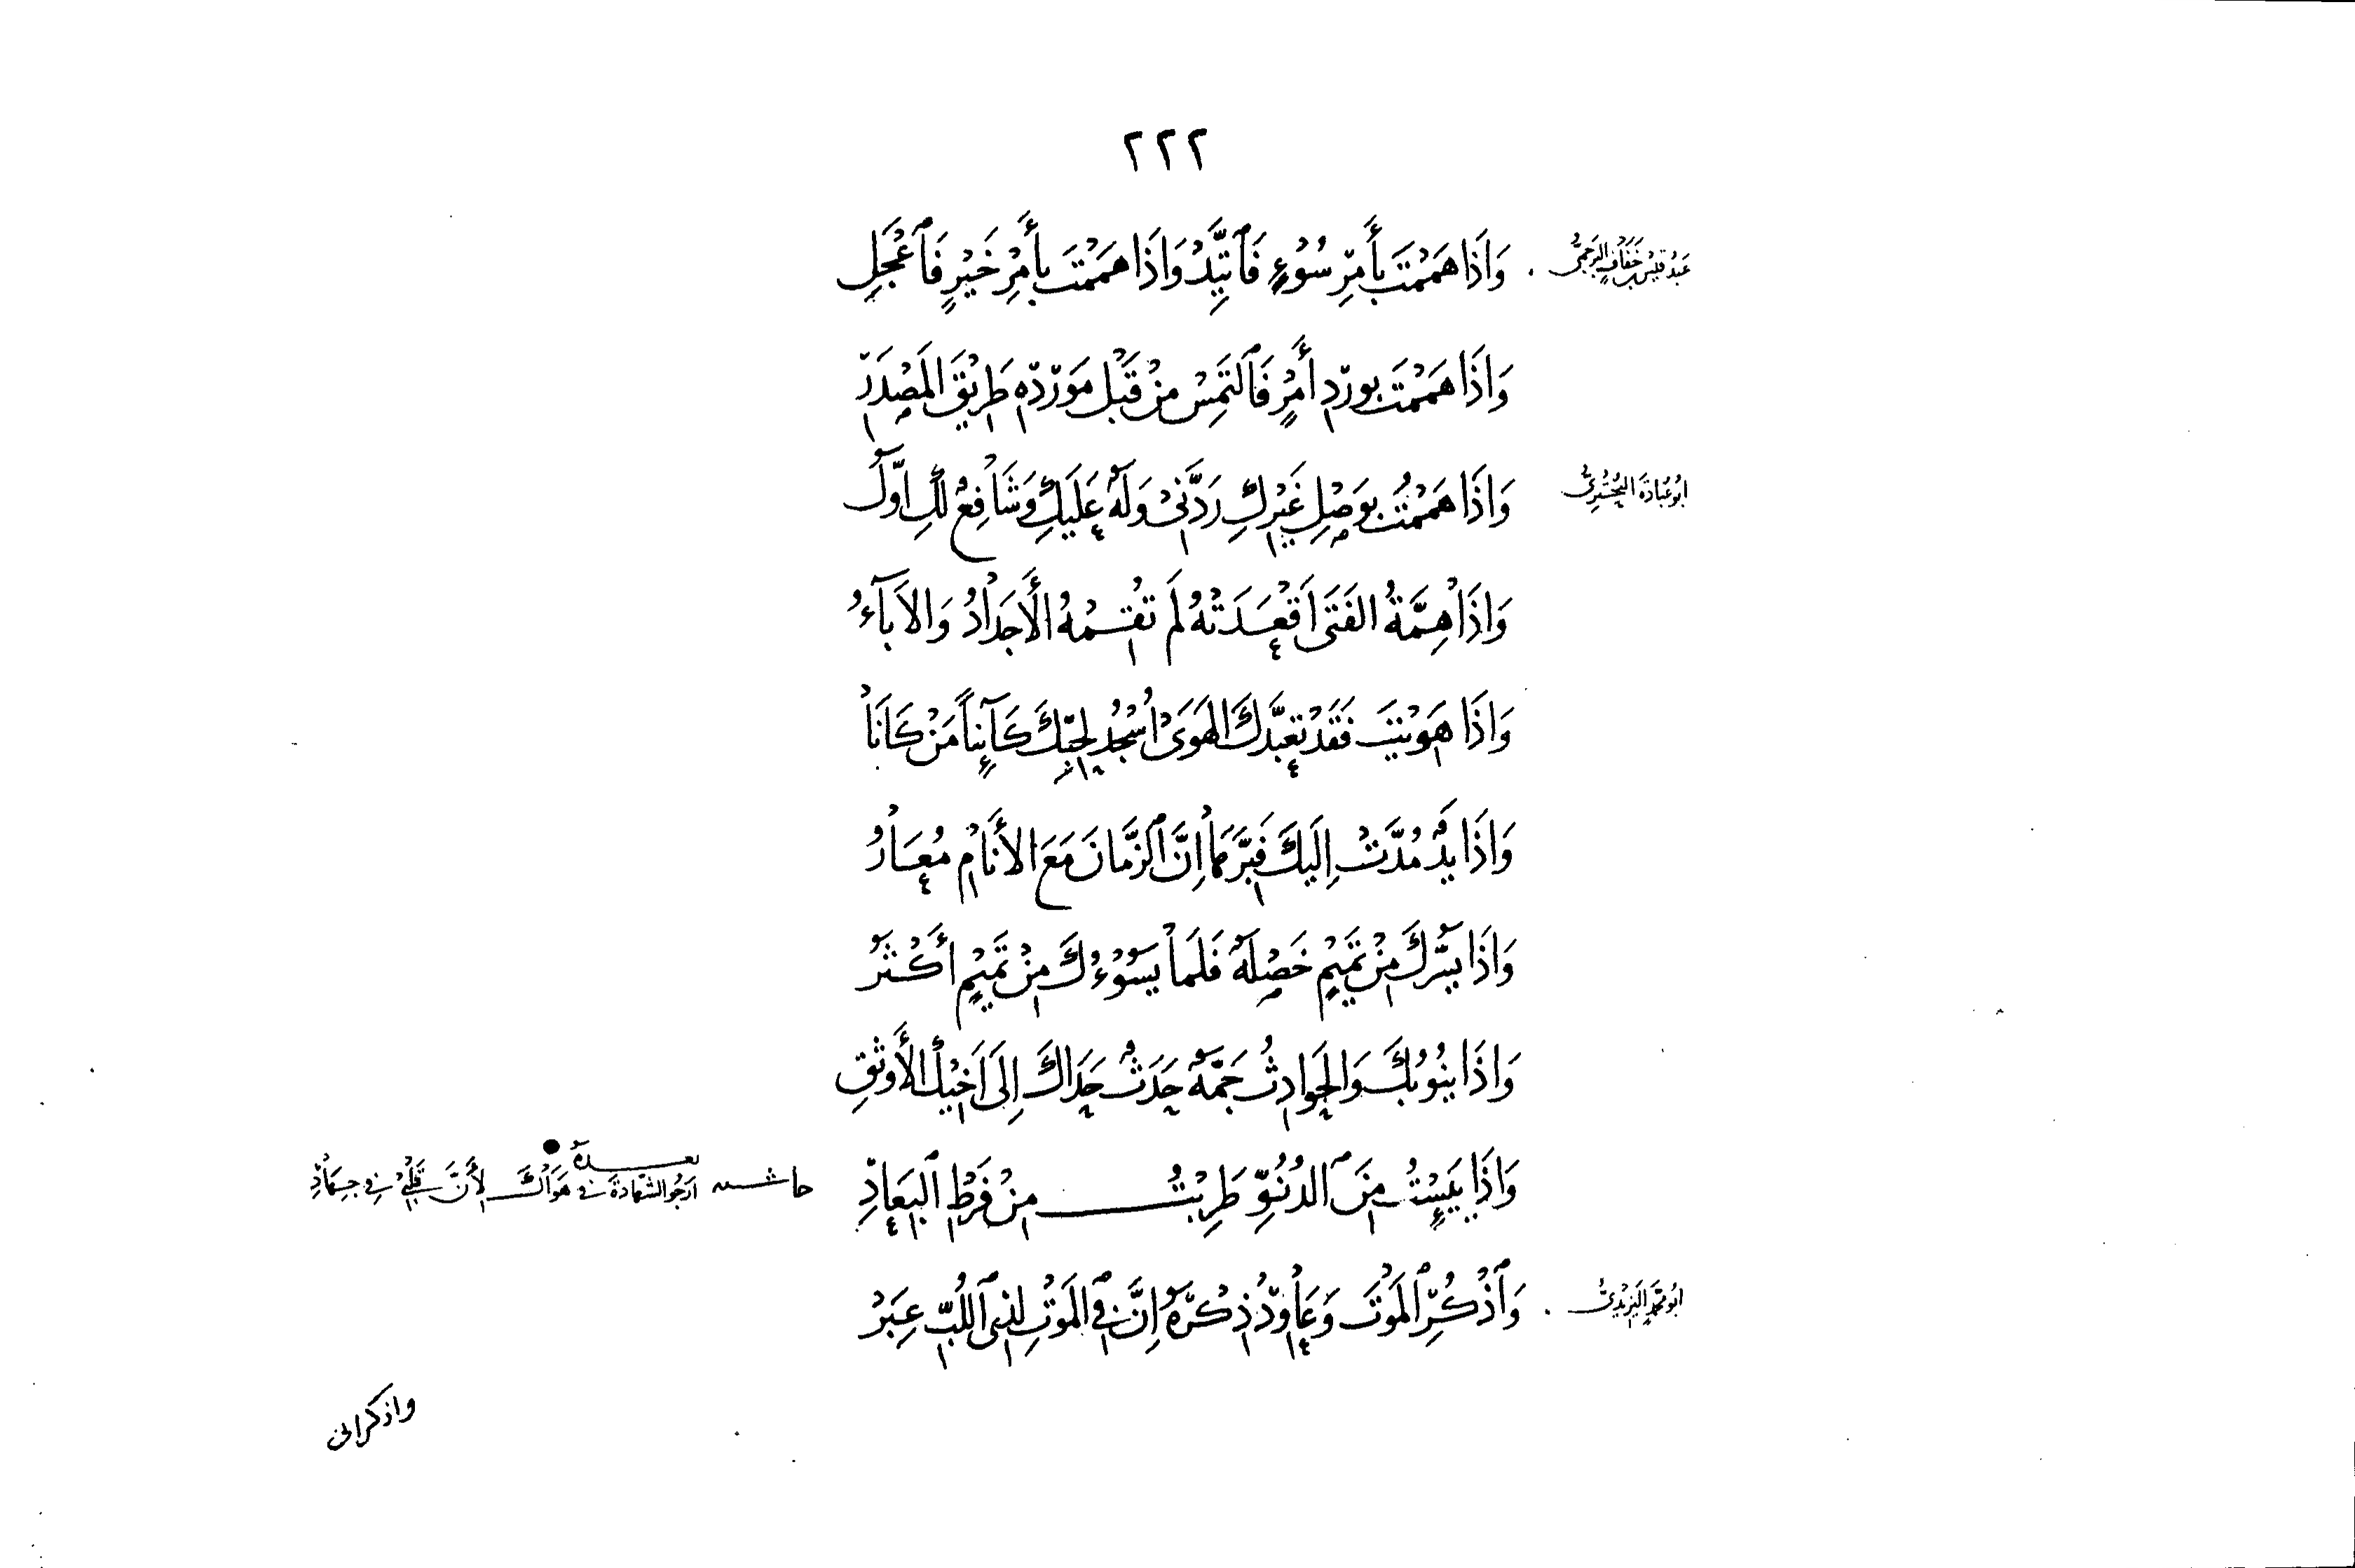 ٢٢٢
عَبْدُ قَيْسِ بْنِ خَفَافٍ البَرجَمِيُّ . وَاِذَا هَمَمْتَ بِأَمْرِ سُوْءٍ فَاتَّئِدْ وَاِذَا هَمَمْتَ بِأَمْرِ خَيْرٍ فَاعْجَلِ
وَاِذَا هَمَمْتَ بِورْدِ أَمْرٍ فَالتَمِسْ مِنْ قَبْلِ مَوْرِدِهِ طَرِيْقَ المَصْدَرِ
اَبُو عُبَادَةَ البُحْتُرِيُّ وَاِذَا هَمَمْتُ بِوَصْلِ غَيْرِكِ رَدَّنِيْ وَلَهٌ عَلَيْكِ وَشَافِعٌ لَكِ اَوَّلُ
وَاِذَا هِمَّةُ الفَتَى اَقْعَدَتْهُ لَمْ تُقِمْهُ الأَجْدَادُ وَالآبَآءُ
وَاِذَا هَوِيْتَ فَقَدْ تَعَبَّدَكَ الهَوَىْ اُسْجُدْ لِحِبِّكَ كَآئِناً مَنْ كَانَا
وَاِذَا يَدٌ مُدَّتْ اِلَيْكَ فَبَرَّهَا اِنَّ الزَّمَانَ مَعَ الأَنَامِ مُعَارُ
وَاِذَا يَسُرُّكَ مِنْ تَمِيْمٍ خَصْلَةٌ فَلَمَا يَسُوْءُكَ مِنْ تَمِيْمٍ أَكْثَرُ
وَاِذَا يَنُوْبُكَ وَالحَوَادِثُ جَمَّةٌ حَدَثٌ حَدَاكَ اِلَى اَخِيْكَ الأَوْثَقِ
وَاِذَا يَئِسْتُ مِنَ الدُّنُوِّ طَرِبْتُ مِنْ فَرْطِ البِعَادِ
حاشـــه بعـــدهُ
اَرْجُو الشَّهَادَةَ فِي هَوَاكَ لِأَنَّ قَلْبِيْ فِي جِهَادِ
اَبُو مُحَمَّدٍ اليَزِيْدِيُّ . وَاذْكُرِ المَوْتَ وَعَاوِدْ ذِكْرَهُ اِنَّ فِي المَوْتِ لِذِي اللُبِّ عِبَرْ
واذكرانى